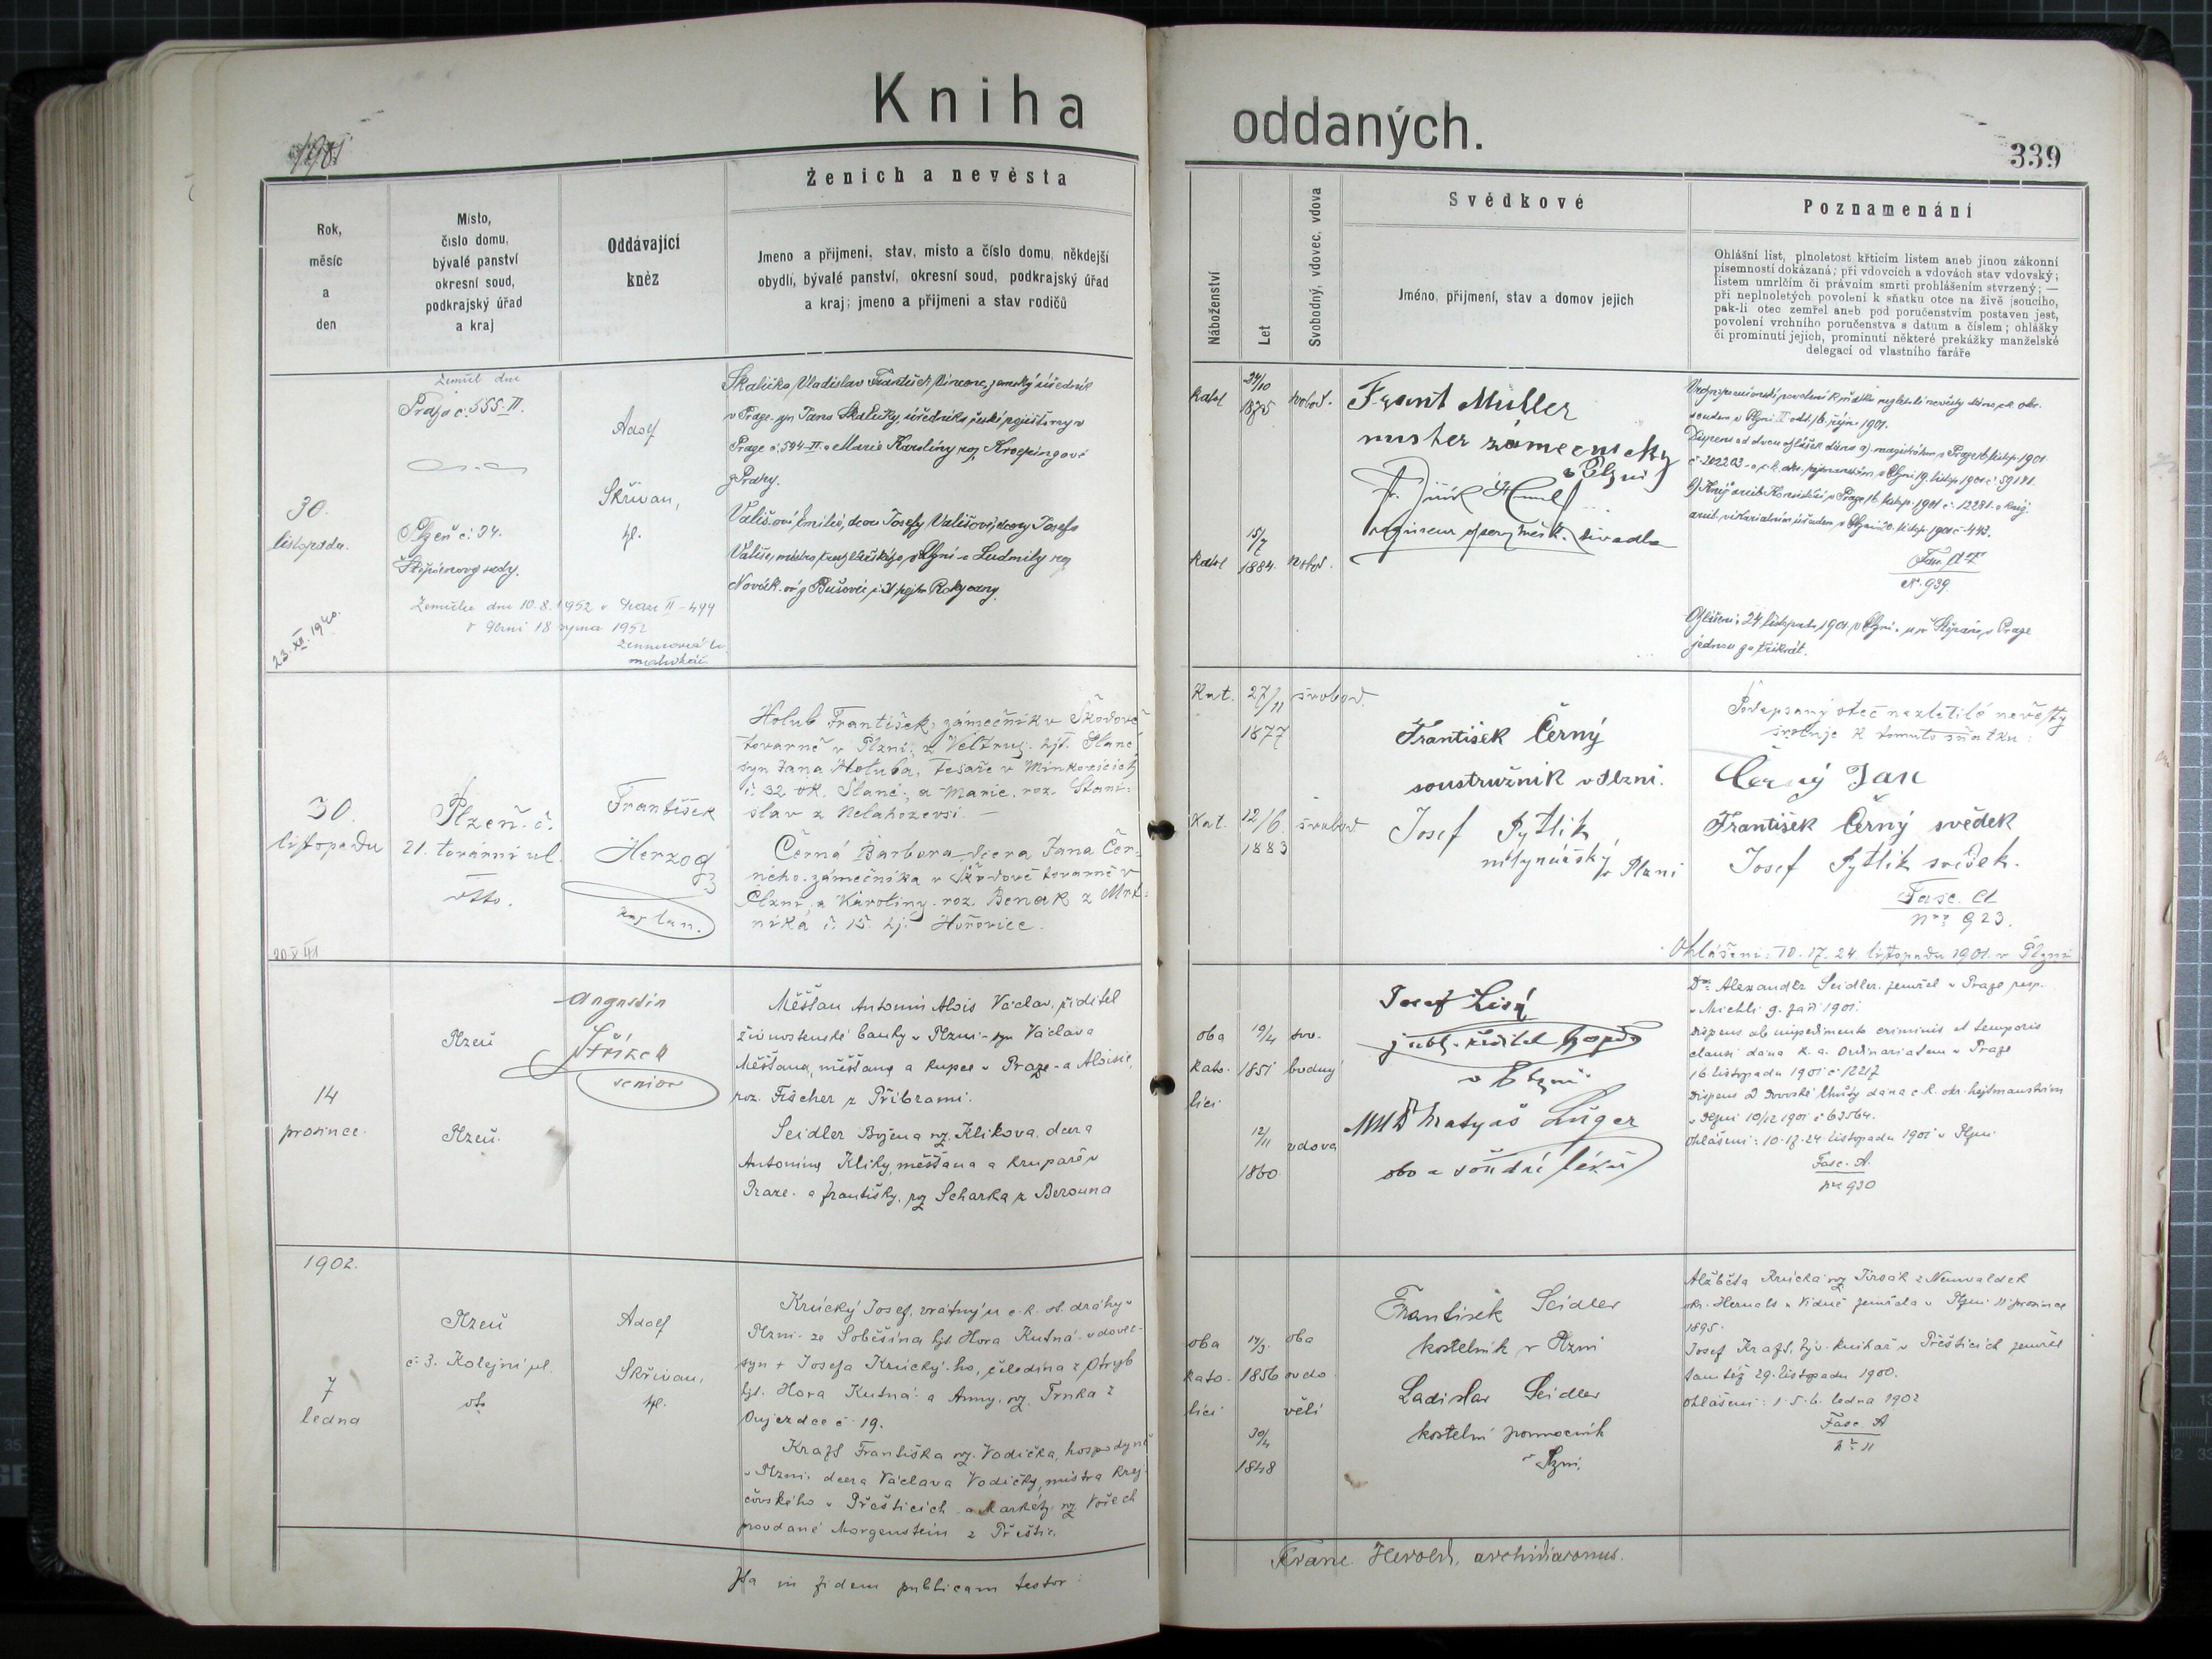 Kniha oddaných.
1901
339
Rok,
měsíc
a
den
Místo,
číslo domu,
bývalé panství
okresní soud,
podkrajský úřad
a kraj
Oddávající
kněz
Ženich a nevěsta
Jmeno a přijmení, stav, místo a číslo domu, někdejší
obydlí, bývalé panství, okresní soud, podkrajský úřad
a kraj; jmeno a přijmení a stav rodičů
Náboženství
Let
Svobodný, vdovec, vdova
Svědkové
Jméno, přijmení, stav a domov jejich
Poznamenání
Ohlášní list, plnoletost křticím listem aneb jinou zákonní
písemností dokázaná; při vdovcích a vdovách stav vdovský;
listem umrlčím či právním smrti prohlášením stvrzený; —
při neplnoletých povolení k sňatku otce na živě jsoucího,
pak-li otec zemřel aneb pod poručenstvím postaven jest,
povolení vrchního poručenstva s datum a číslem; ohlášky
či prominutí jejich, prominutí některé překážky manželské
delegací od vlastního faráře
30.
listopadu.
23.XII.1940.
Zemřel dne
Praha č. 555-II.
Plzeň č. 34.
sady.
Zemřela dne 10.8.1952 v Praze II-499
v Plzni 18 října 1952
Adolf
Skřivan,
kpl.
Skalička Vladislav František Vincenc, zemský úředník
v Praze, syn Jana Skaličky, úředníka české pojišťovny v
Praze č. 594-II. a Marie Karolíny roz.
z Prahy.
Vališová Emilie, dcera Josefy Vališové, dcery Josefa
Vališe, mistra v Plzni a Ludmily roz.
Novák z Bušovic, Rokycany.
katol
24/10
1875
svobod.
katol
15/7
1884.
svobod.
Frant Müller
mister zámečnický
v Plzni
regisseur opery měst. divadla
soudem v Plzni II odd. 16. října 1901.
Dispens od dvou ohlášek dána a) magistrátem v Praze 16. listop. 1901
b) Kníž. arcib. Konsistoří v Praze 16. listop. 1901 č. 12281.
Fasc. A
No. 939.
Ohlášeni: 24 listopadu 1901 v Plzni, u sv Štěpána v Praze
jednou za třikrát.
30.
listopadu
20.X.41
Plzeň č.
21. tovární ul.
dtto.
František
Herzog
kaplan.
Holub František, zámečník v Škodově
továrně v Plzni, z Veltrus. hjt. Slané
syn Jana Holuba, tesaře v Minkovicích
č. 32 ok. Slané, a Marie, roz. Stani-
slav z Nelahozevsi. —
Černá Barbora dcera Jana Čer-
ného. zámečníka v Škodově továrně v
Plzni, a Karoliny. roz. Benak z Mrt-
níka č. 15. hj. Hořovice.
Kat.
27/11
1877
svobod
Kat.
12/6.
1883
svobod
František Černý
soustružník v Plzni.
Josef Pytlík
mlynářský v Plzni
Podepsaný otec nezletilé nevěsty
svoluje k tomuto sňatku:
Černý Jan
František Černý svědek
Josef Pytlík svědek.
Fasc. A
nro 923.
Ohlášeni: 10. 17. 24. listopadu 1901. v Plzni
14
prosince.
Plzeň
Plzeň.
Augustin
Stříšek
senior
Měšťan Antonín Alois Václav, ředitel
živnostenské banky v Plzni - syn Václava
Měšťana, měšťana a kupce v Praze - a Aloisie,
roz. Fischer z Příbrami.
Seidler Božena roz. Klikova, dcera
Antonína Kliky, měšťana a krupaře v
Praze - a Františky, roz Scharka z Berouna
oba
kato-
líci
19/4
1851
svo-
bodný
12/11
1860
vdova
Josef Lisý
jubl. ředitel
v Plzni
MUDr Matyáš Lüger
obv. a soudní lékař
Dr. Alexander Seidler, zemřel v Praze resp.
v Michli 9. září 1901.
Dispens ab impedimento criminis et temporis
clausi dána k. a. Ordinariatem v Praze
16 listopadu 1901 č 12217
Dispens z vdovské lhůty dána c. k. okr. hejtmanstvím
v Plzni 10/12 1901 č 63564.
Ohlášeni: 10. 17. 24. listopadu 1901 v Plzni
Fasc. A.
nro 930
1902.
7
ledna
Plzeň
č. 3. Kolejní ul.
dto
Adolf
Skřivan,
kpl.
Krucký Josef, vrátný u c. k. st. dráhy v
Plzni - ze Soběšína hjt. Hora Kutná - vdovec -
syn + Josefa Krucký-ho, čeledína z Otryb
hjt. Hora Kutná - a Anny, roz. Trnka z
Oujezdce č 19.
Kraft Františka roz. Vodička, hospodyně
v Plzni. dcera Václava Vodičky, mistra krej-
čovského v Přešticích a Markéty roz Vořech
provdané Morgenstein z Přeštic.
oba
kato-
líci
14/3.
1856
oba
ovdo
věli
30/4
1848
František Seidler
kostelník v Plzni
Ladislav Seidler
kostelní pomocník
v Plzni.
Alžběta Krucká roz Tirsák z Neuwaldek
okr. Hernals u Vídně zemřela v Plzni 11 prosince
1895.
Josef Kraft, býv. knihař v Přešticích zemřel
tamtéž 29. listopadu 1900.
Ohlášeni: 1. 5. 6. ledna 1902
Fasc. A
nro 11
Ita in fidem publicam testor:
Franc. Herold, archidiaconus.